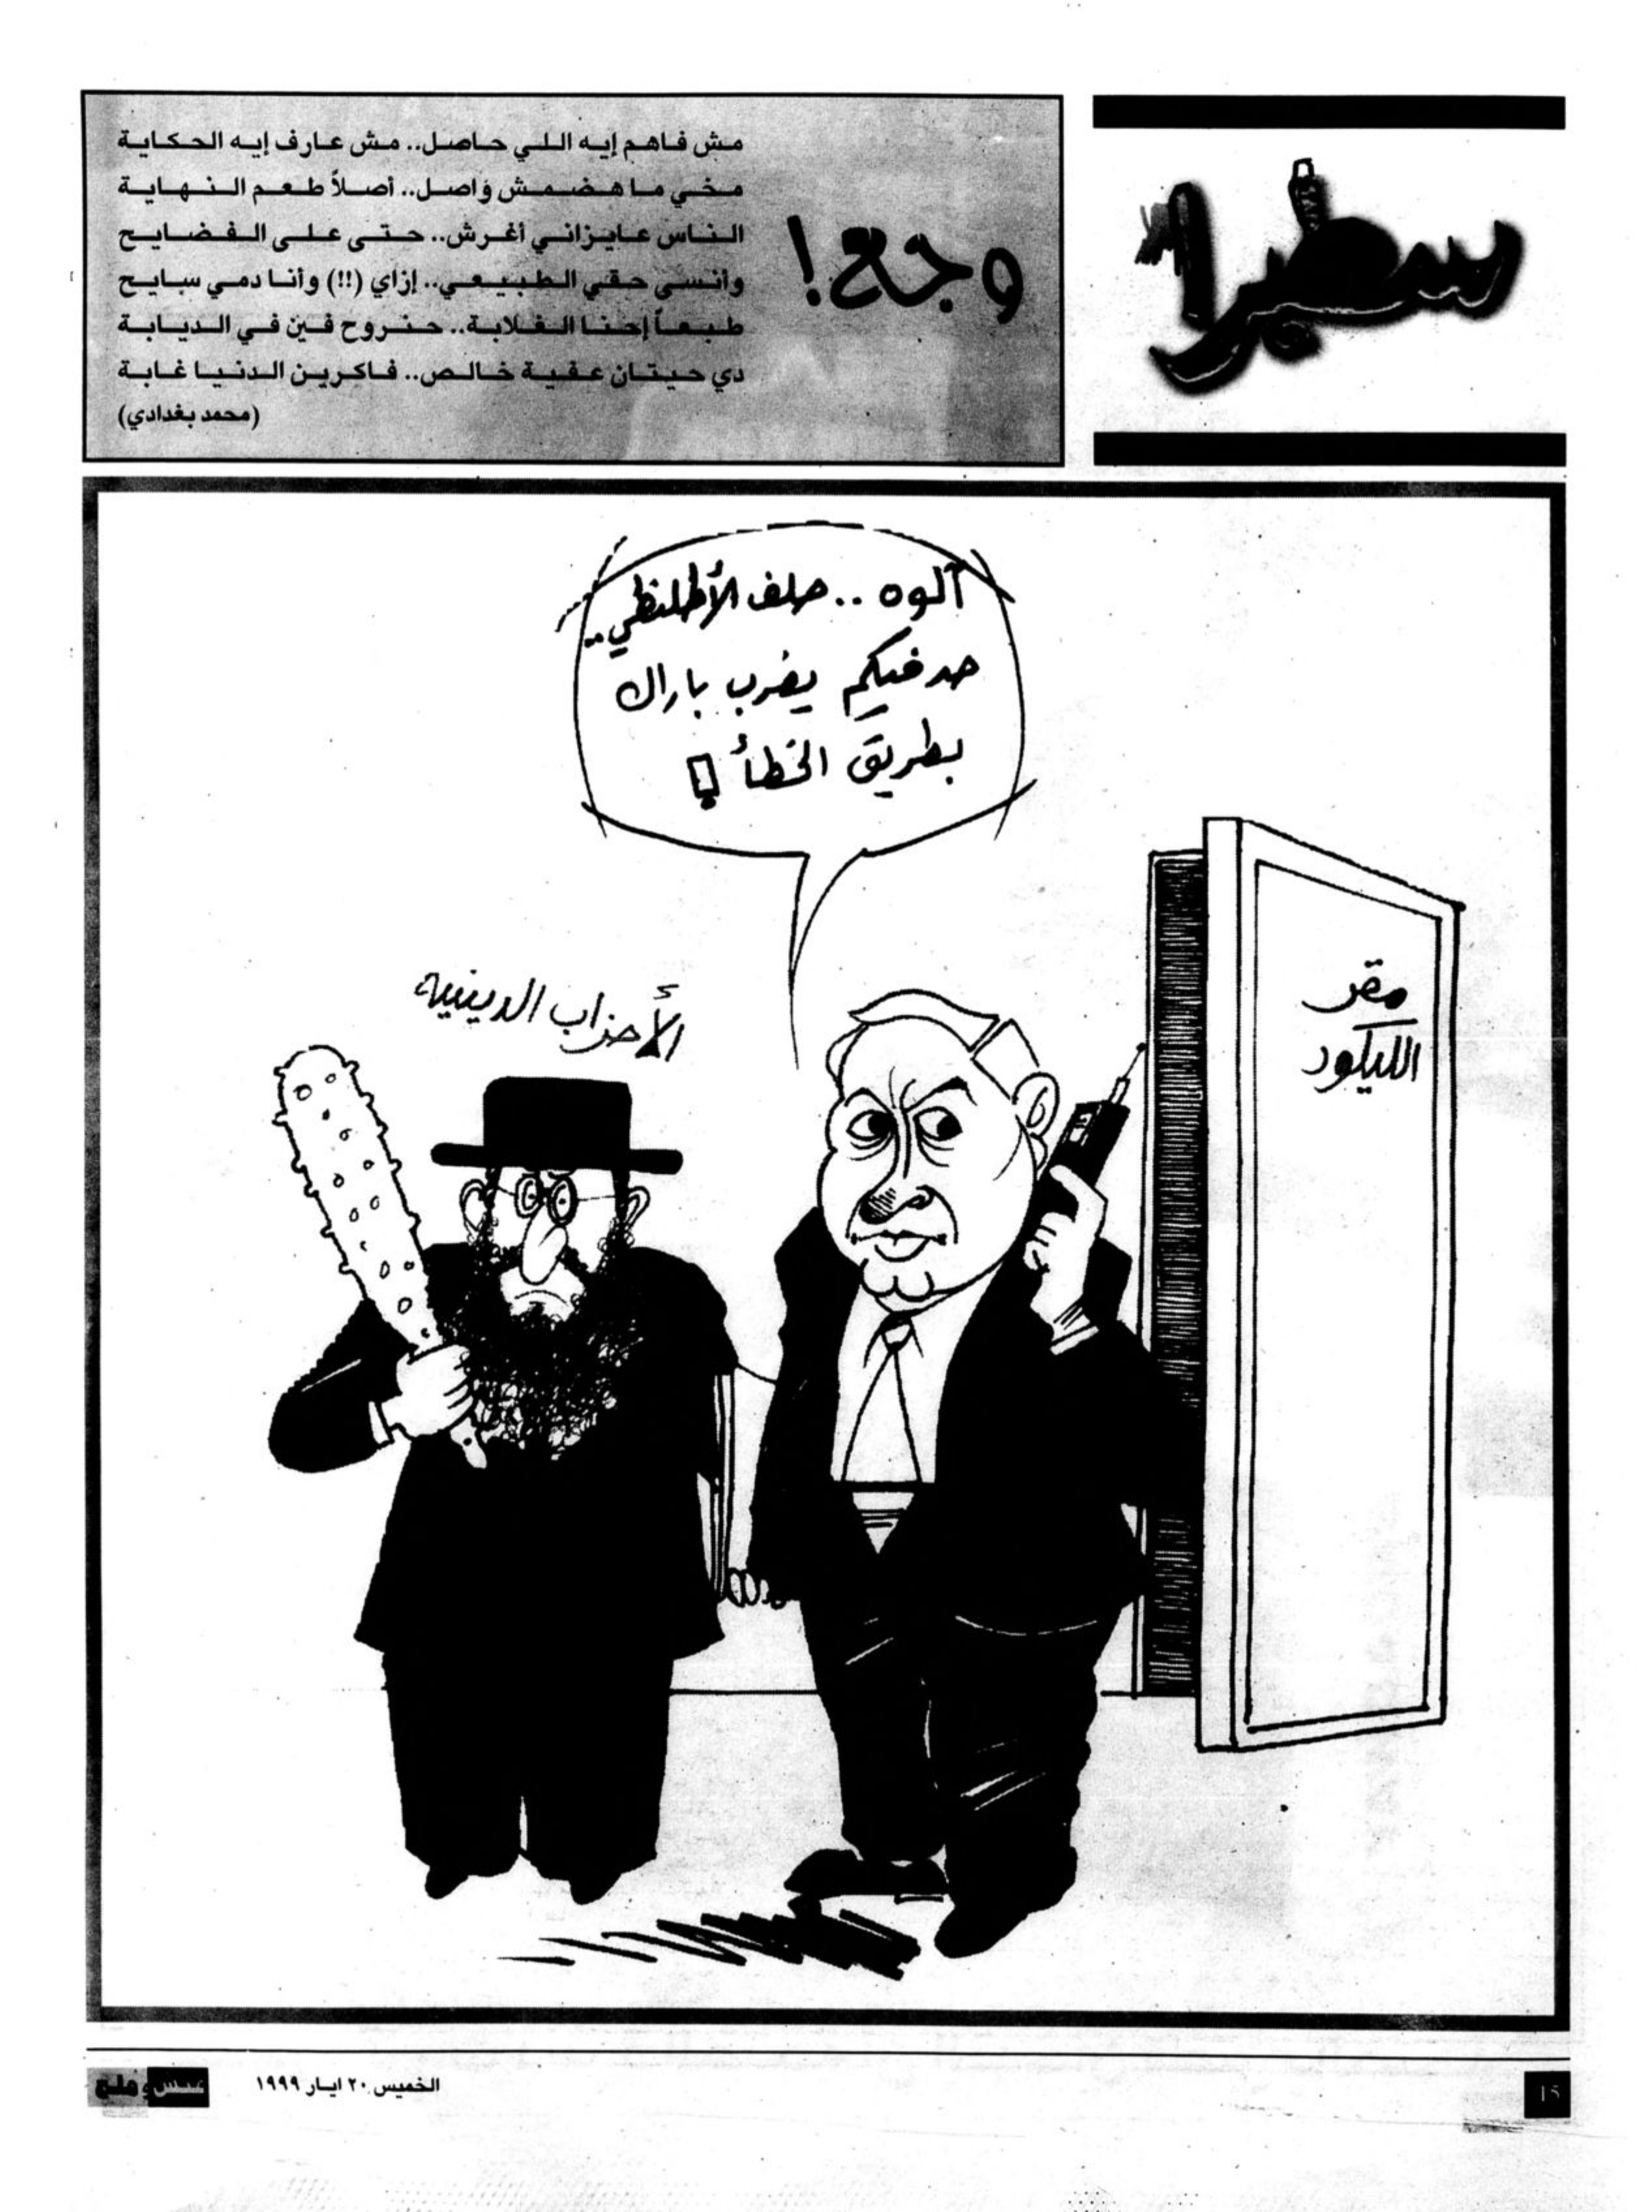 سفيرا
وجع!
مش فاهم إيه اللي حاصل.. مش عارف إيه الحكاية
مخي ما هضمش واصل.. أصلاً طعم النهاية
الناس عايزاني أغرش.. حتى على الفضايح
وأنسى حقي الطبيعي.. إزاي (!!) وأنا دمي سايح
طبعاً إحنا الغلابة.. حنروح فين في الديابة
دي حيتان عفية خالص.. فاكرين الدنيا غابة
(محمد بغدادي)
آلوه .. حلف الأطلنطي ..
حد فيكم يضرب باراك
بطريق الخطأ !
مقر
الليكود
الأحزاب الدينية
١٥
الخميس ٢٠ ايار ١٩٩٩
عيش وملح